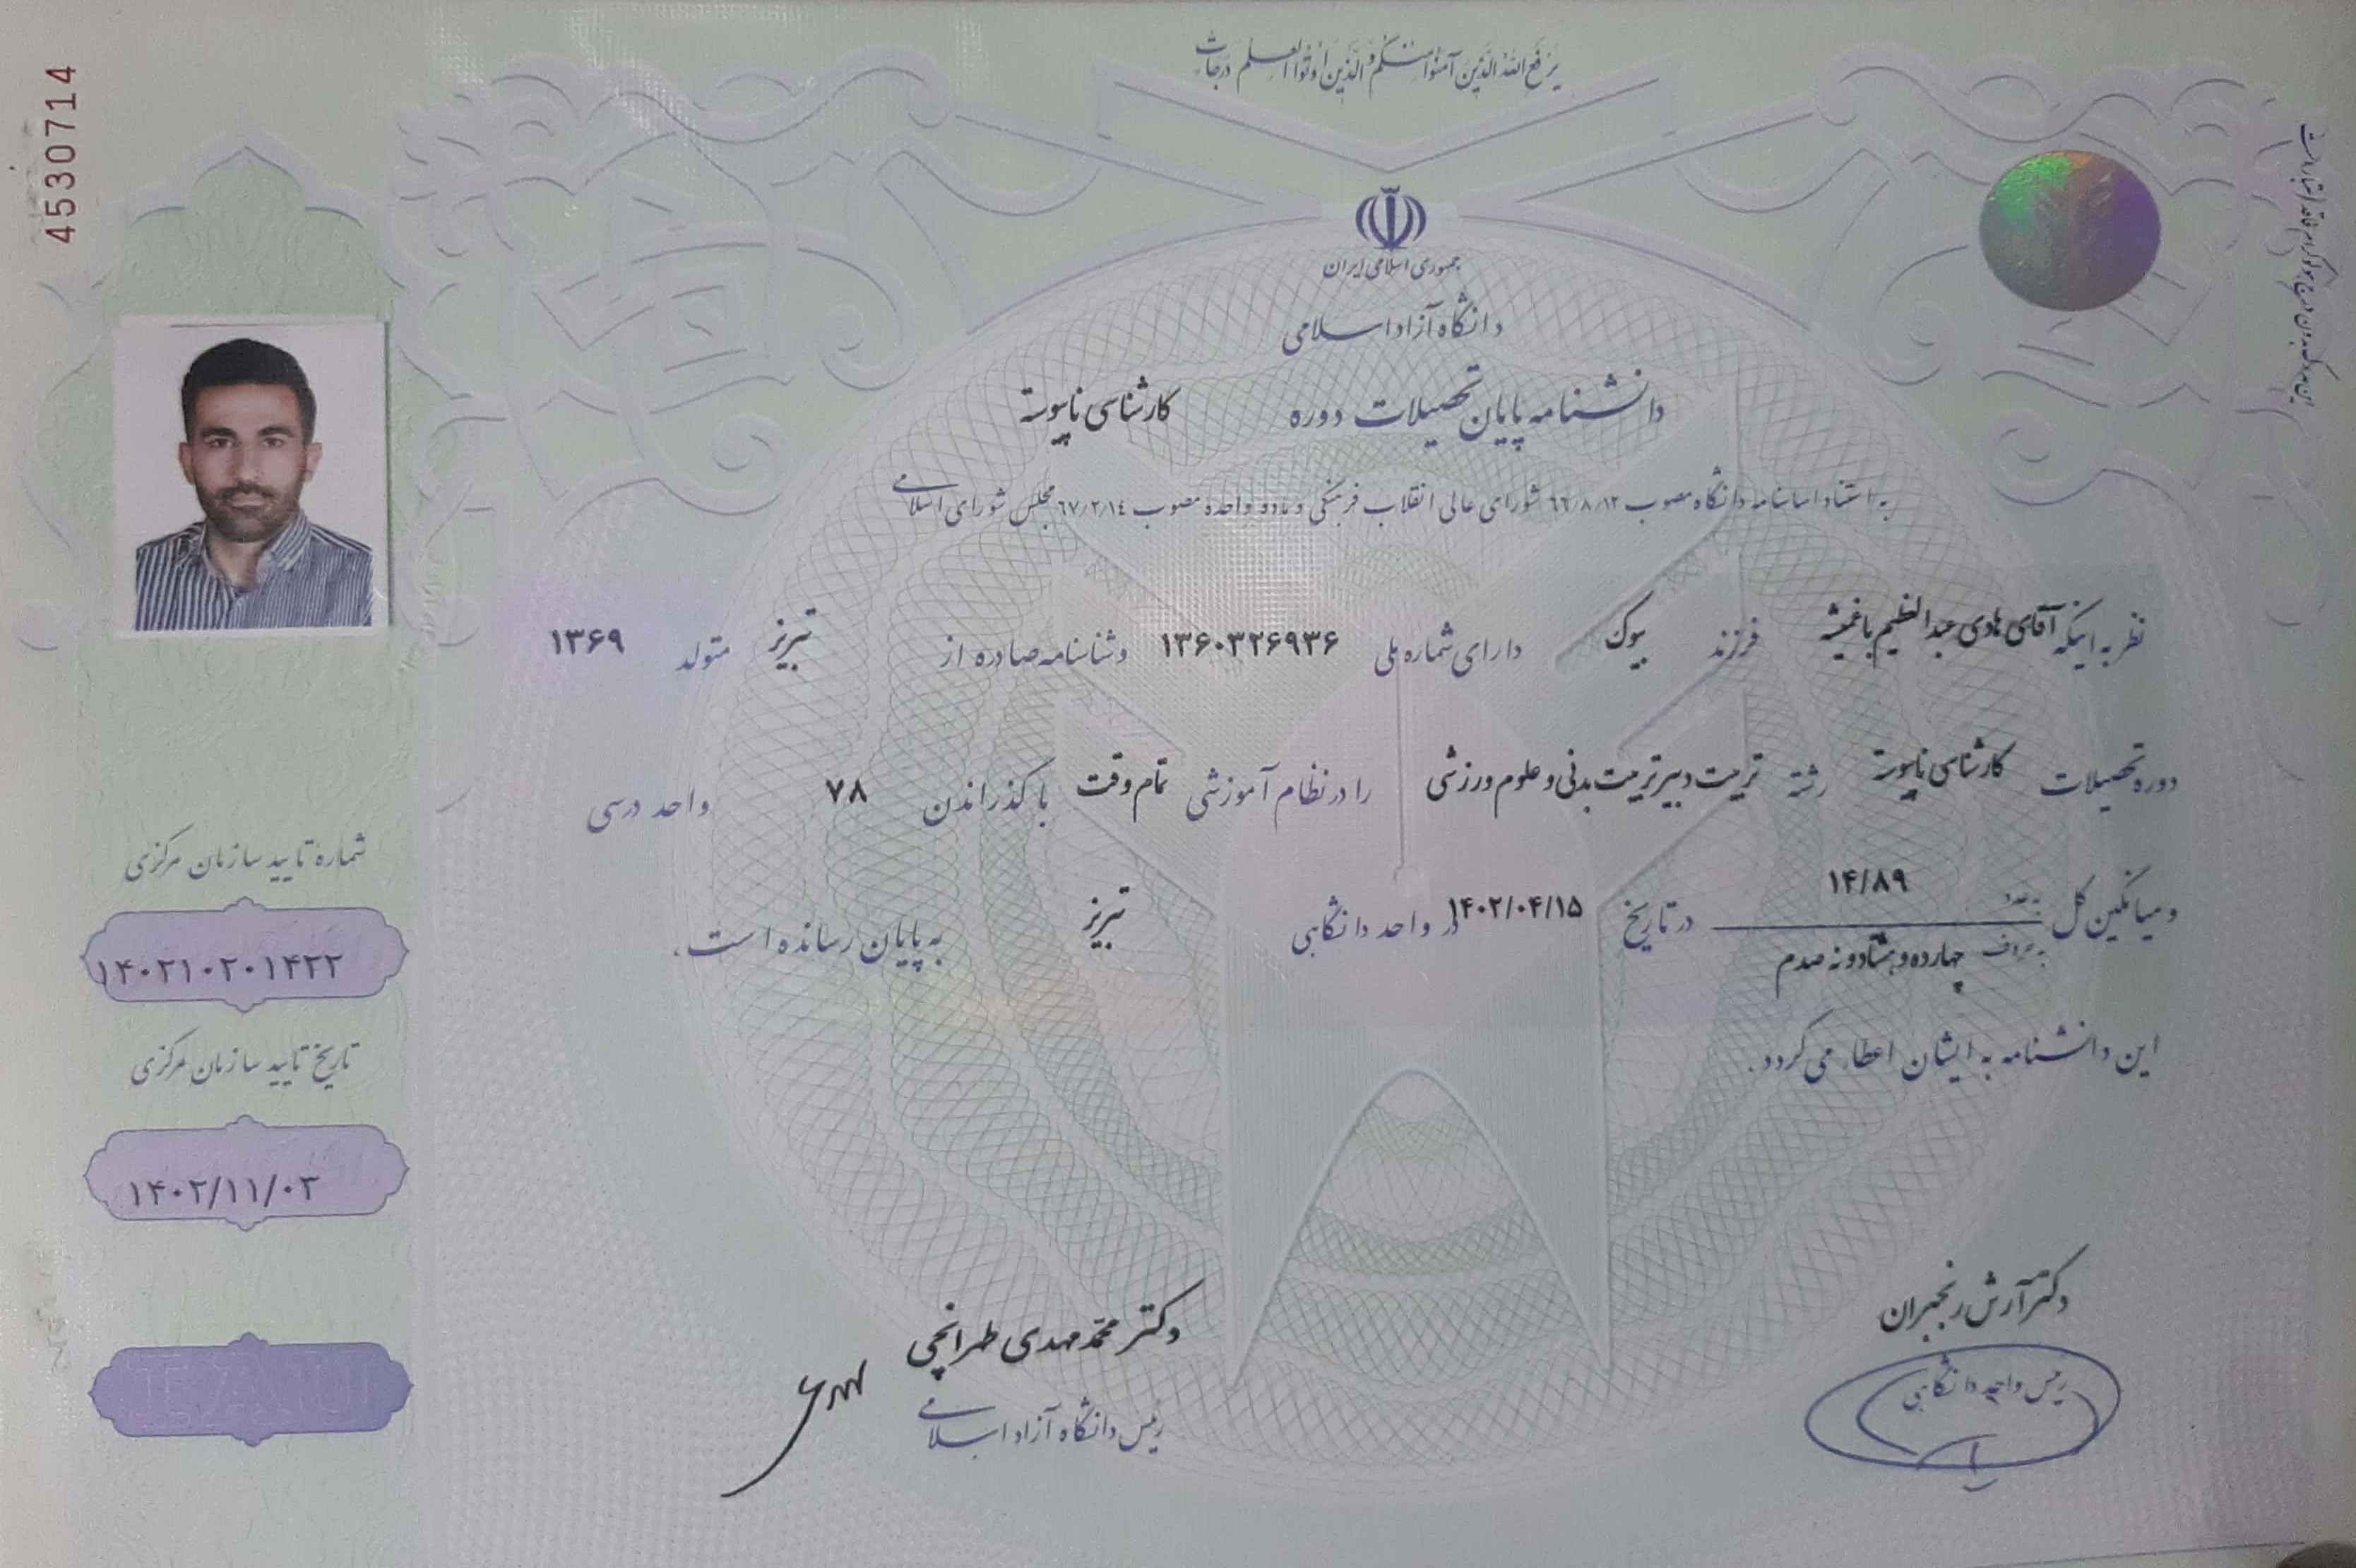 4530714
یرفع الله الذین آمنوا منکم و الذین اوتوا العلم درجات
جمهوری اسلامی ایران
دانشگاه آزاد اسلامی
دانشنامه پایان تحصیلات دوره کارشناسی ناپیوسته
به استناد اساسنامه دانشگاه مصوب ٦٦/٨/١٢ شورای عالی انقلاب فرهنگی و ماده واحده مصوب ٦٧/٢/١٤ مجلس شورای اسلامی
نظر به اینکه آقای هادی عبدالعظیم باغمیشه فرزند بیوک دارای شماره ملی ۱۳۶۰۳۲۶۹۳۶ و شناسنامه صادره از تبریز متولد ۱۳۶۹
دوره تحصیلات کارشناسی ناپیوسته رشته تربیت دبیر تربیت بدنی و علوم ورزشی را در نظام آموزشی تمام وقت با گذراندن ۷۸ واحد درسی
و میانگین کل به عدد ۱۴/۸۹ به حروف چهارده و هشتاد و نه صدم در تاریخ ۱۴۰۲/۰۴/۱۵ در واحد دانشگاهی تبریز به پایان رسانده است.
این دانشنامه به ایشان اعطاء می گردد.
شماره تایید سازمان مرکزی
۱۴۰۲۱۰۲۰۱۴۲۲
تاریخ تایید سازمان مرکزی
۱۴۰۲/۱۱/۰۳
دکتر آرش رنجبران
رئیس واحد دانشگاهی
دکتر محمدمهدی طهرانچی
رئیس دانشگاه آزاد اسلامی
این مدرک بدون درج هولوگرام فاقد اعتبار است